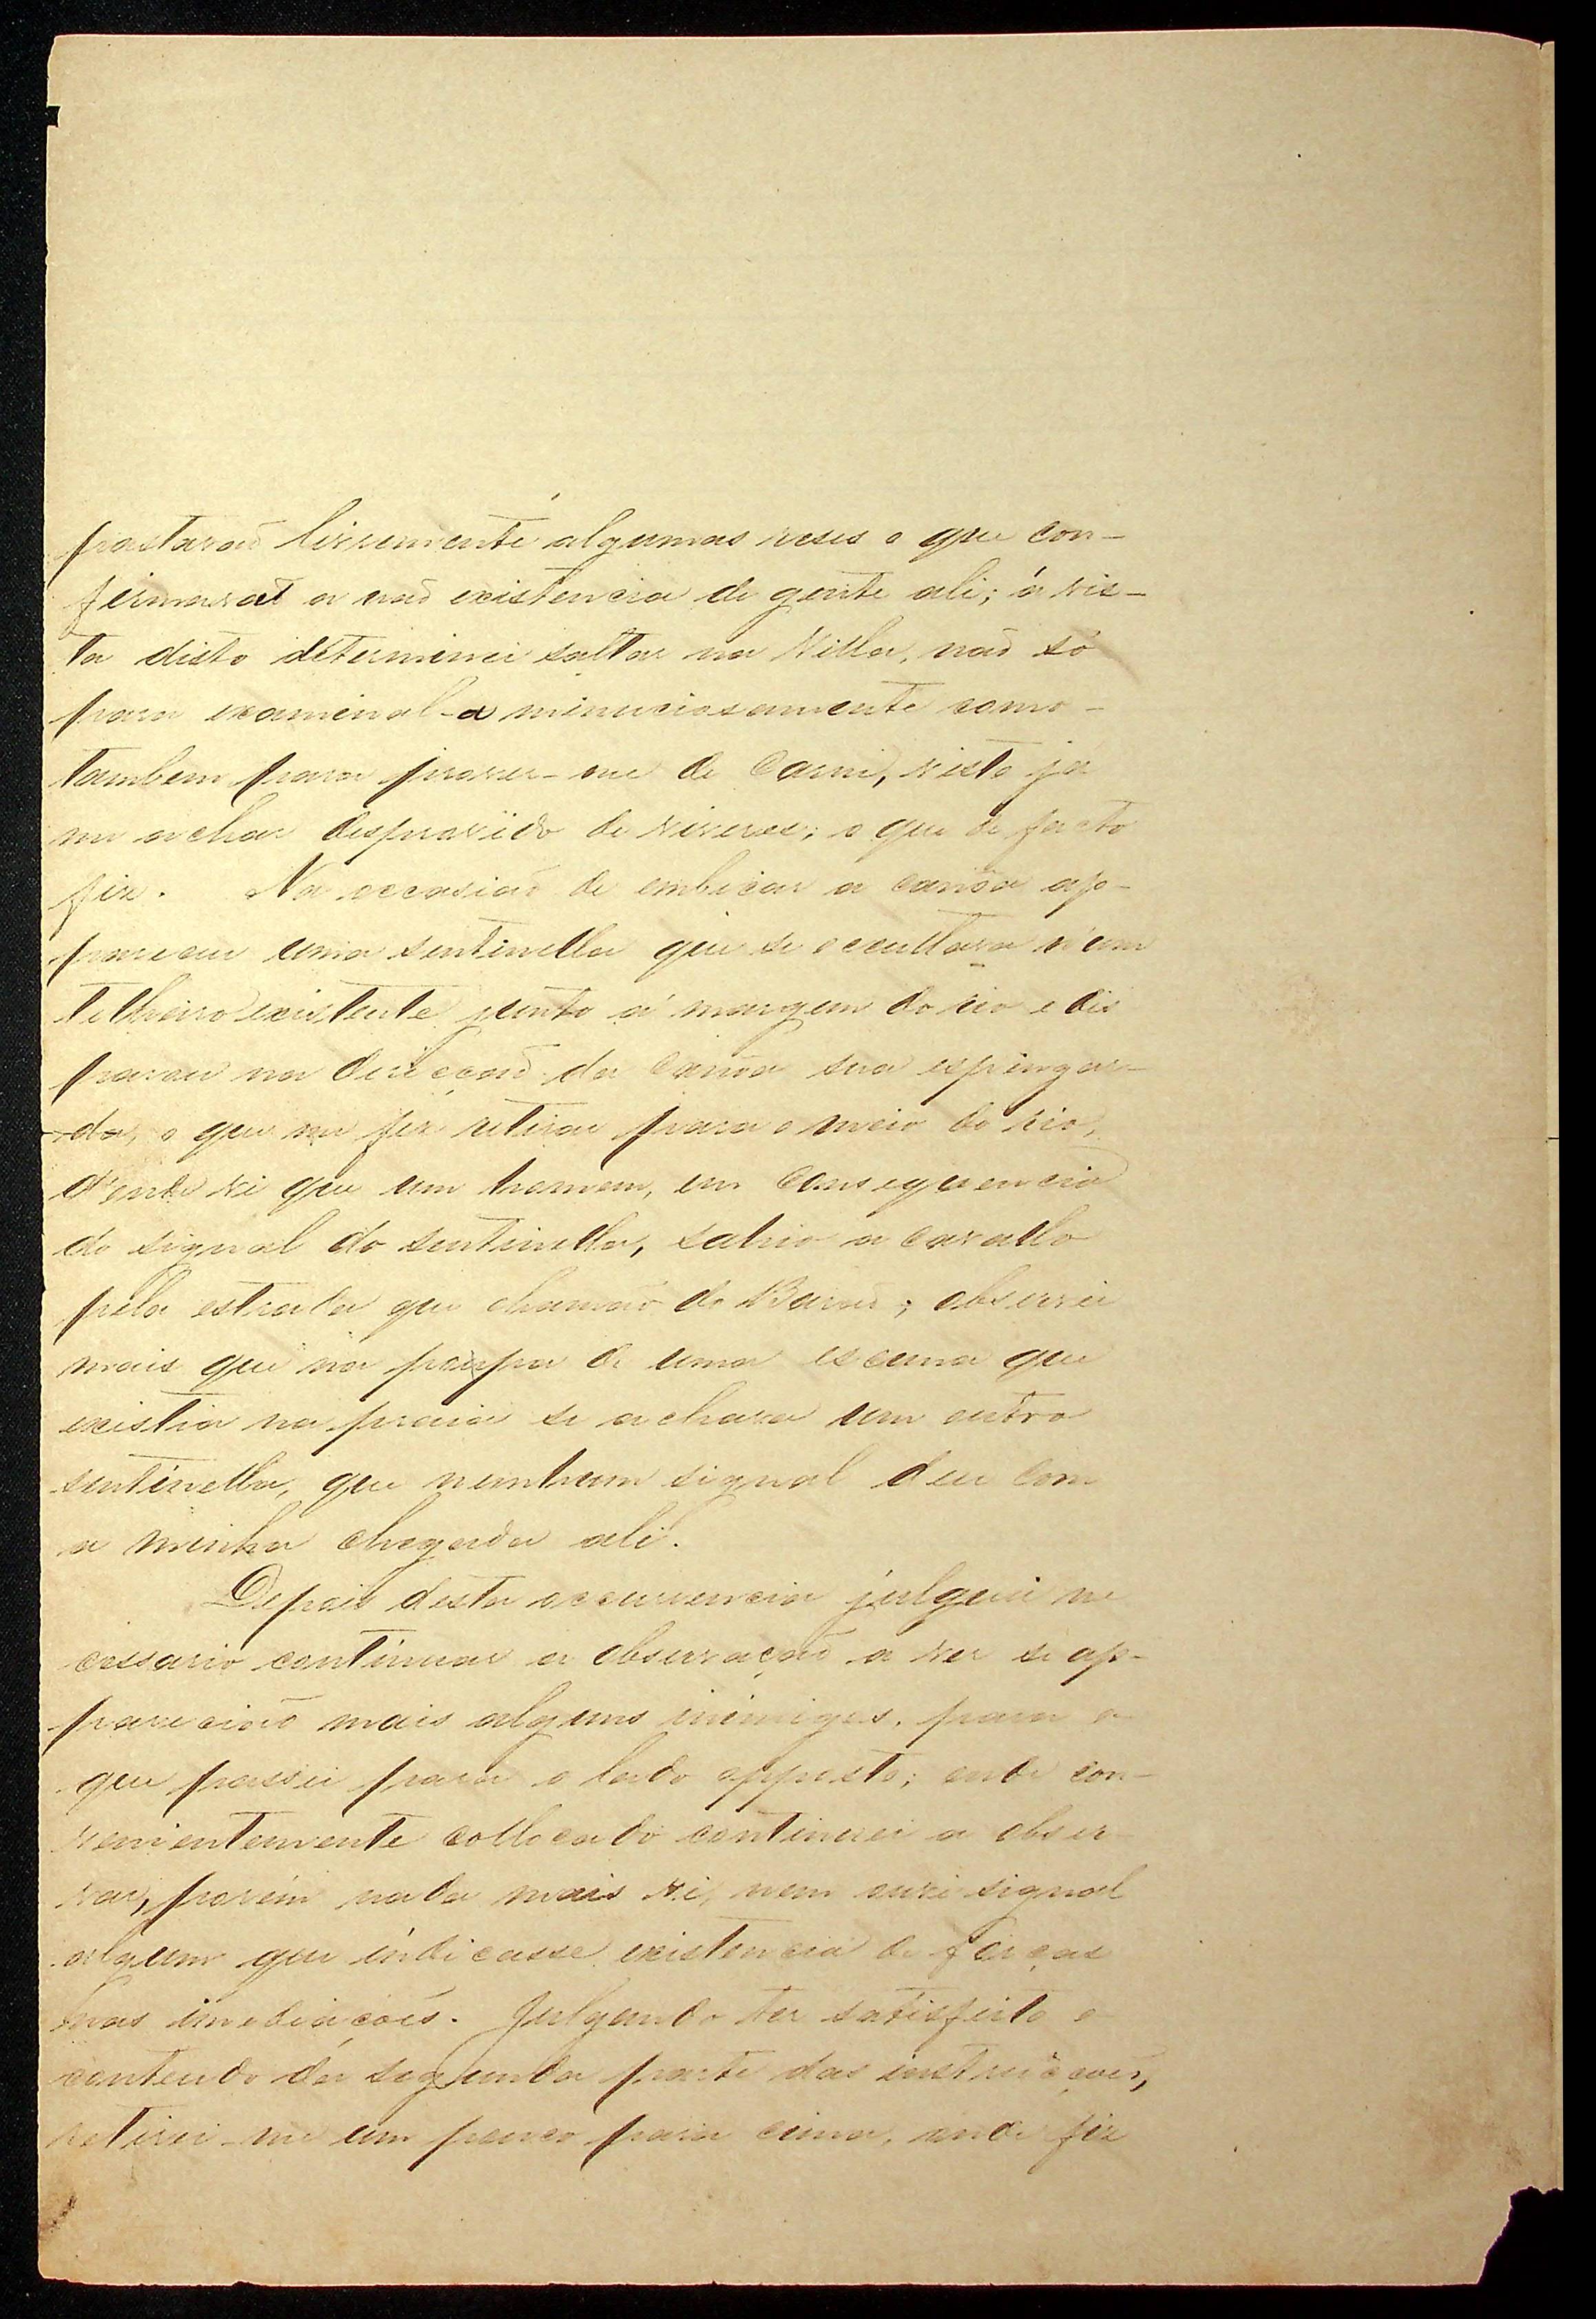 pastavaõ livremente algumas reses o que con-
firmavaõ a naõ existencia de gente ali; á vis-
ta disto determinei saltar na Villa, naõ só
para examinal-a minuciosamente como-
tambem para prover-me de Carne, visto já
me achar desprovido de viveres; o que de facto
fiz. Na occasiaõ de embicar a canôa ap-
pareceu uma sentinella que se occultava n'um
telheiro existente junto á margem do rio e dis
parou na direcçaõ da Canôa sua espingar-
da, o que me fez retirar para o meio do rio,
d'onde vi que um homem, em consequencia
do signal do sentinella, sahio a cavallo
pela estrada que chamaõ do Baraõ; observei
mais que na poupa de uma escuna que
existia na praia se achava um outro
sentinella, que nenhum signal deu com
a minha chegada ali.
Depois desta occurrencia julguei ne
cessario continuar a observaçaõ a ver se ap-
pareciaõ mais alguns inimigos, para o
que passei para o lado opposto; onde con-
venientemente collocado continuei a obser
var, porém nada mais vi, nem ouvi signal
algum que indicasse existencia de forças
nas imediaçoẽs. Julgando ter satisfeito o
conteudo da segunda parte das instrucçoẽs,
retirei-me um pouco para cima, onde fiz